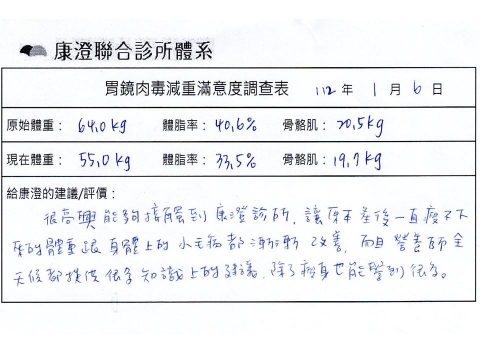 康澄聯合診所體系
胃鏡肉毒減重滿意度調查表 112 年 1 月 6 日
原始體重: 64.0kg 體脂率: 40.6% 骨骼肌: 20.5kg
現在體重: 55.0kg 體脂率: 33.5% 骨骼肌: 19.7kg
給康澄的建議/評價:
很高興能夠接觸到康澄診所,讓原本產後一直瘦不下
來的體重跟身體上的小毛病都漸漸改善,而且營養師全
天候都提供很多知識上的建議,除了瘦身也能學到很多。